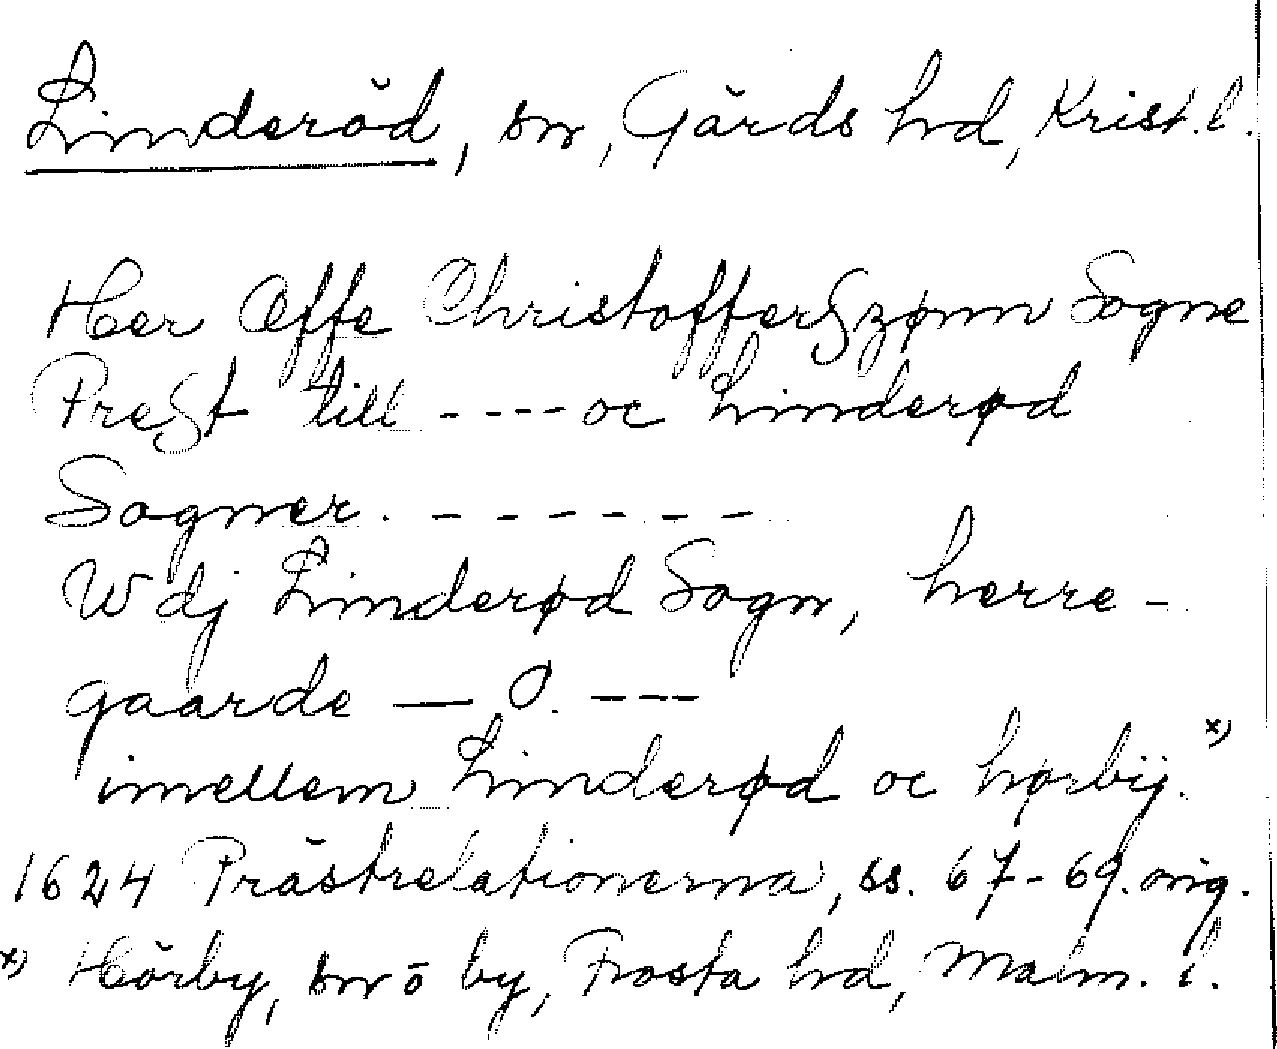 Linderöd, sn, Gärds hd, Krist. l.
Her Offe Christofferßzønn Sogne
Preßt till ---- oc Linderød
Sogner. - - - - - - -
Wdj Linderød Sogn, herre-
gaarde — O. ---
imellem Linderød oc hørbÿ. x)
1624 Prästrelationerna, ss. 67-69. orig.
x) Hörby, sn o by, Frosta hd, Malm. l.